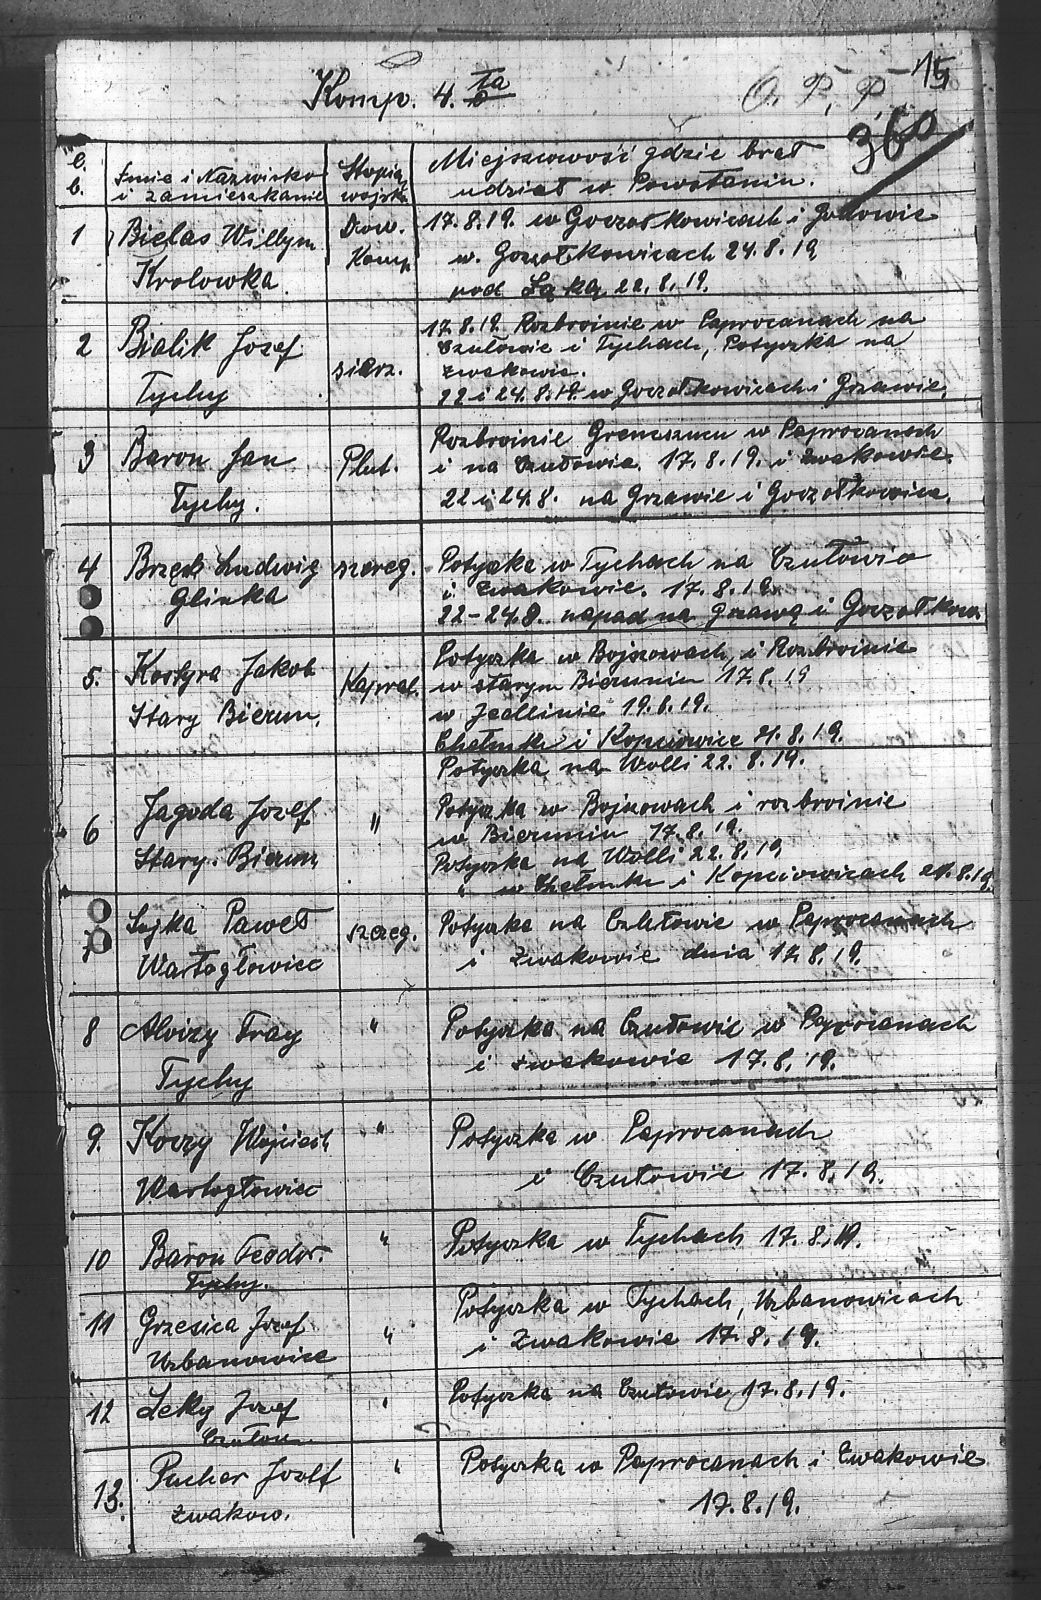 15
Komp. 4. ta
O. P. P.
360
L. b. Imie i Nazwisko i zamieszkanie Stopią wojsk. Miejszowość gdzie brał udział w Powstaniu.
1 Bielas Wilhym Dow. 17.8.19. w Goczołkowicach i
Krolowka Komp w. Goczołkowicach 24.8.19
pod Łąką 22.8.19.
2 Bialik Jozef sierz. 17.8.19. Rozbroinie w Paprocanach na
Czułowie i Tychach, Potyczka na
Zwakowie.
Tychy 22 i 24.8.19. w Goczołkowicach i Grzawie.
3 Baron Jan Plut. Rozbroinie Grencszucu w Paprocanach
i na Czułowie. 17.8.19. i Zwakowie.
Tychy. 22 i 24.8. na Grzawie i Goczołkowice.
4 Brzęk Ludwig szereg. Potyczka w Tychach na Czułowie
Glinka i Zwakowie. 17.8.19.
22-24.8. napad na Grzawą i Goczołkow.
5. Kostyra Jakob Kapral. Potyczka w Bojszowach, i Rozbroinie
w starym Bieruniu 17.8.19
Stary Bierun. w Jedlinie 19.8.19.
Chełmku i Kopciowice 21.8.19.
Potyczka na Wolli 22.8.19.
6 Jagoda Jozef " Potyczka w Bojszowach i rozbroinie
w Bieruniu 17.8.19.
Stary. Bierun Potyczka na Wolli 22.8.19
" w Chełmku i Kopciowicach 21.8.19.
7 Sojka Paweł szereg. Potyczka na Czułowie w Paprocanach
Wartogłowiec i Zwakowie dnia 17.8.19.
8 Aloizy Fray " Potyczka na Czułowie w Paprocanach
Tychy i Zwakowie 17.8.19.
9. Koczy Wojciech " Potyczka w Paprocanach
Wartogłowiec i Czułowie 17.8.19.
10 Baron Teodor. " Potyczka w Tychach 17.8.19.
Tychy.
11 Grzesica Jozef " Potyczka w Tychach, Urbanowicach
Urbanowice i Zwakowie 17.8.19.
12 Leky Jozef " Potyczka na Czułowie 17.8.19.
Czułow
13. Pucher Jozef " Potyczka w Paprocanach i Zwakowie
Zwakow. 17.8.19.